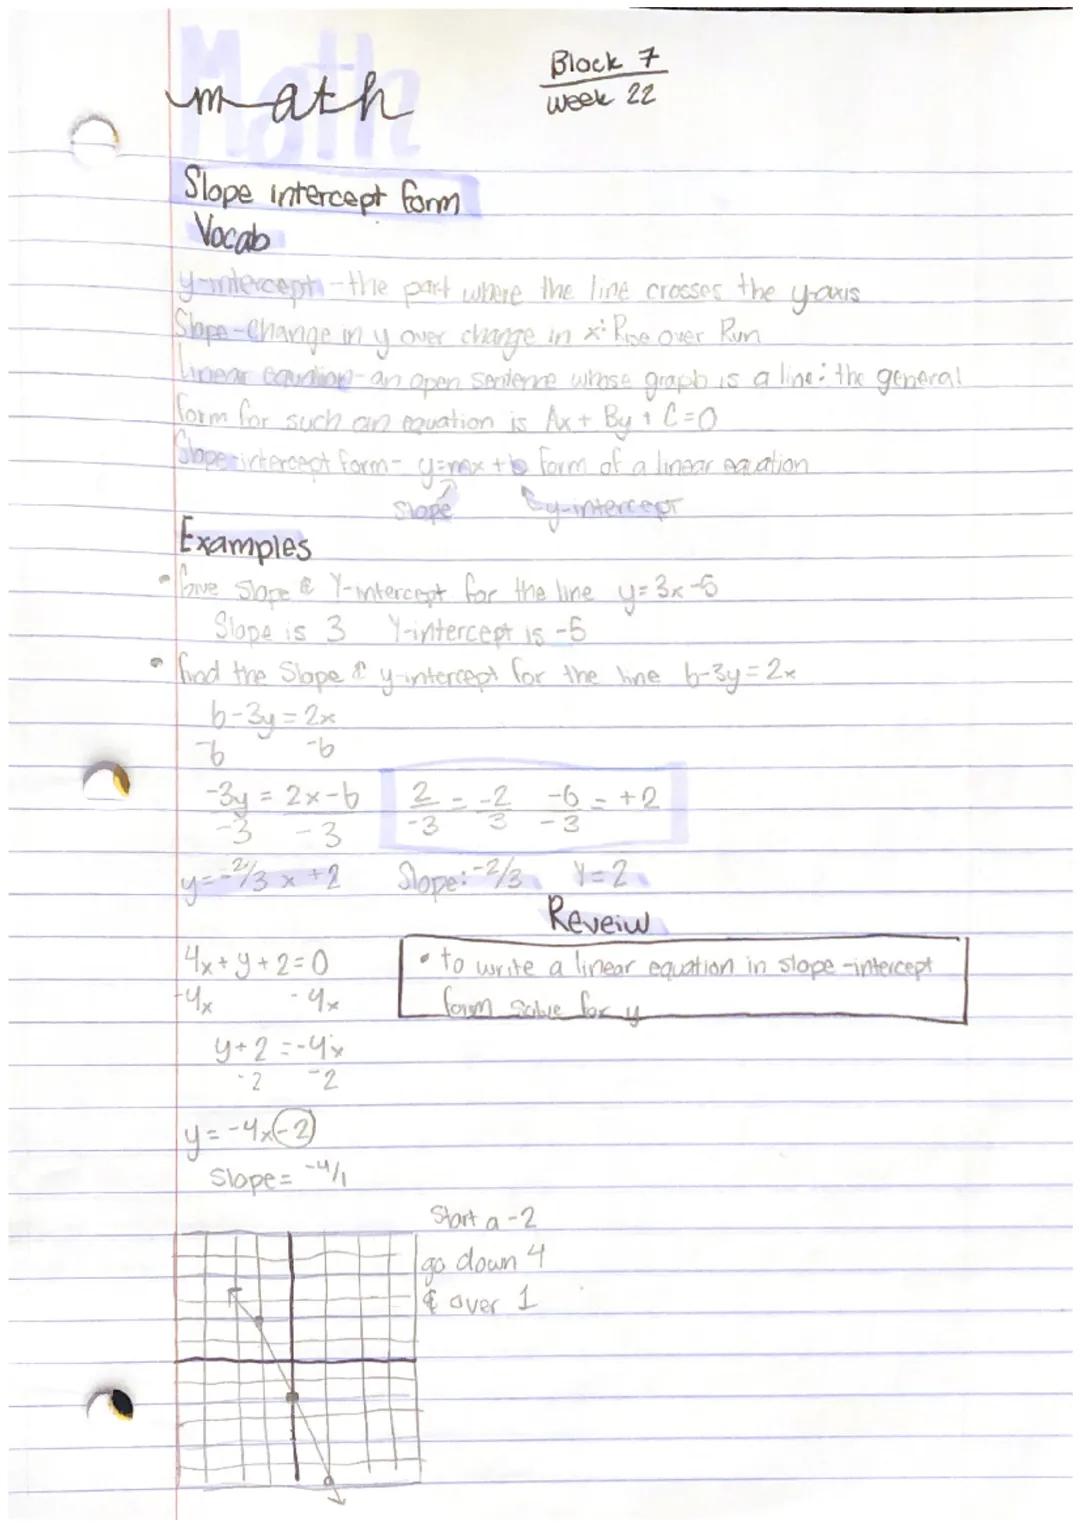 Math
math
Block 7
week 22
Slope intercept form
Vocab
y-intercept - the part where the line crosses the y-axis
Slope - Change in y over change in x: Rise over Run
Linear equation - an open sentence whose graph is a line: the general
form for such an equation is Ax + By + C = 0
Slope-intercept form - y=mx+b form of a linear equation
slope y-intercept
Examples
• Give Slope & Y-intercept for the line y=3x-5
Slope is 3 Y-intercept is -5
• find the Slope & y-intercept for the line 6-3y=2x
6-3y=2x
-6 -6
-3y = 2x-6
-3 -3
2/-3 = -2/3 -6/-3 = +2
y=-2/3 x +2 Slope: -2/3 Y=2
Reveiw
• to write a linear equation in slope-intercept
form solve for y
4x+y+2=0
-4x -4x
y+2=-4x
-2 -2
y=-4x-2
Slope= -4/1
Start a -2
go down 4
& over 1